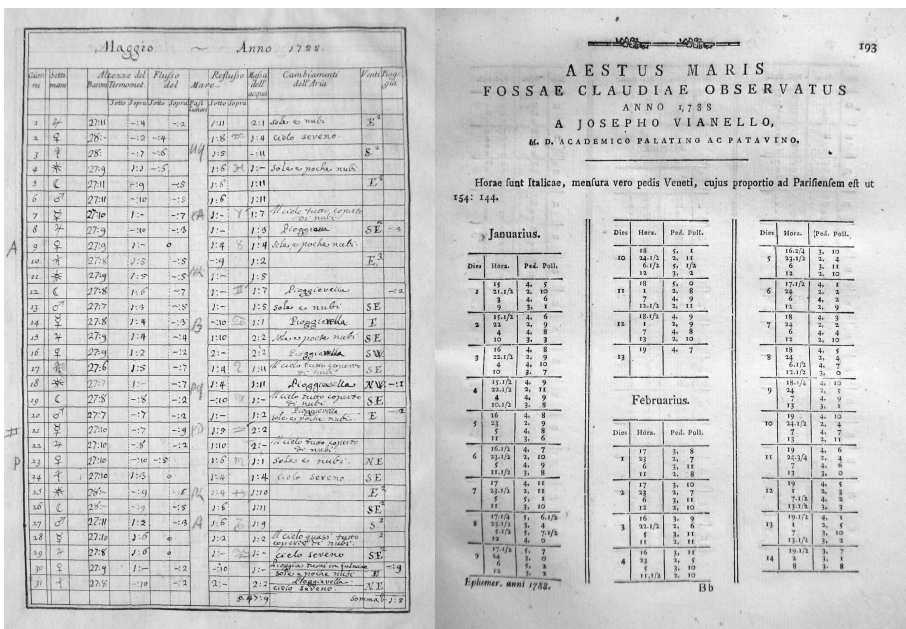 Maggio ~ Anno 1788.
Giorni Setti mane Altezze del Flusso del Mare Reflusso Massa dell' acqua Cambiamenti dell'Aria Venti Pioggia
Barom Termomet. Sotto Sopra Sotto Sopra Sotto Sopra
1 27:11 -:4 -:2 1:11 2:1 Sole e nubi E
2 28:- -:2 -:4 1:8 1:4 cielo sereno.
3 28: -:7 -:6 1:5 -:11 S
4 27:9 1:1 -:5 1:6 1:- Sole e poche nubi
5 27:11 -:9 -:5 1:6 1:11 E
6 27:11 -:10 -:5 1:6 1:11
7 27:10 1:- -:7 1:- 1:7 Il cielo tutto coperto di nubi
8 27:9 -:10 -:3 1:- 1:3 Pioggia SE -:3
9 27:9 1:- 0 1:4 1:4 Sole e poche nubi.
10 27:8 1:5 -:5 -:9 1:2 E
11 27:9 1:5 -:5 1:- 1:5
12 27:8 1:6 -:7 1:- 1:7 Pioggievella -:2
13 27:7 1:3 -:5 1:- 1:5 Sole e nubi SE
14 27:8 1:4 -:3 -:10 1:1 Pioggievella E
15 27:9 1:4 -:4 1:10 2:2 Sole e poche nubi SE
16 27:9 1:2 -:2 2:- 2:2 Pioggievella SW.
17 27:6 1:5 -:7 1:4 1:11 Il cielo tutto coperto di nubi SE
18 27:7 1:- -:7 1:4 1:11 Pioggievella NW. -:1
19 27:8 -:8 -:2 -:10 1:- Il cielo tutto coperto di nubi SE
20 27:7 -:7 -:2 1:- 1:2 Pioggievella sole e poche nubi E -:2
21 27:10 -:7 -:9 1:5 2:2
22 27:10 -:8 -:2 1:10 2:- Il cielo tutto coperto di nubi
23 27:10 -:10 -:5 1:6 1:1 Sole e nubi. NE
24 27:10 1:3 0 1:4 1:4 Cielo sereno SE
25 28:- -:9 -:6 1:4 1:10 E
26 28:- -:9 -:5 1:6 1:11 SE
27 27:11 1:2 -:3 1:6 1:9 S
28 27:10 1:6 0 1:2 1:2 Il cielo quasi tutto coperto di nubi.
29 27:8 1:6 0 1:- 1:- cielo sereno SE
30 27:9 1:- -:2 -:10 1:- sole e poche nubi E -:9
31 27:8 -:10 -:2 2:- 2:2 Pioggievella cielo sereno. NE
Somma 1:8
193
AESTUS MARIS
FOSSAE CLAUDIAE OBSERVATUS
ANNO 1788
A JOSEPHO VIANELLO,
M. D. ACADEMICO PALATINO AC PATAVINO.
Horae sunt Italicae, mensura vero pedis Veneti, cujus proportio ad Parisiensem est ut
154: 144.
Januarius.
Dies Hora. Ped. Poll.
1 15 4, 5
21.1/2 2, 10
3 4, 6
9 3, 1
2 15.1/2 4, 6
22 2, 9
4 4, 8
10 3, 3
3 16 4, 8
22.1/2 2, 9
4 4, 10
10 3, 7
4 15.1/2 4, 9
22.1/2 2, 11
4 4, 9
10.1/2 3, 8
5 16 4, 8
23 2, 9
5 4, 8
11 3, 6
6 16.1/2 4, 7
23.1/2 2, 10
5 4, 9
11.1/2 3, 8
7 17 4, 11
23.1/2 2, 11
5 5, 1
11 3, 10
8 17.1/4 5, 6.1/2
23.1/2 3, 4
5 5, 7.1/2
12 4, 9
9 17.1/2 5, 7
24 3, 0
6 5, 2
12 3, 2
Ephemer. anni 1788.
Dies Hora. Ped. Poll.
10 18 5, 1
24.1/2 2, 11
6.1/2 5, 1/2
12 3, 2
11 18 5, 0
1 2, 8
7 4, 9
12.1/2 2, 11
12 18.1/2 4, 9
1 2, 9
7 4, 8
13 19 4, 7
Februarius.
Dies Hora. Ped. Poll.
1 17 3, 8
23 2, 7
6 3, 11
11 2, 8
2 17 3, 10
23 2, 7
6 3, 11
12 2, 10
3 16 3, 9
22.1/2 2, 6
5 3, 11
11 2, 11
4 16 3, 11
23 2, 5
5 3, 10
11.1/2 2, 10
Bb
Dies Hora. Ped. Poll.
5 16.2/4 3, 10
23.1/2 2, 4
6 3, 11
12 2, 10
6 17.1/2 4, 1
24 2, 2
6 4, 2
12 2, 9
7 18 4, 3
24 2, 2
6 4, 4
12 2, 10
8 18 4, 5
24 2, 4
6.1/2 4, 7
12.1/2 3, 0
9 18.1/4 4, 10
24 2, 7
7 4, 9
13 3, 1
10 19 4, 10
24.1/2 2, 4
7 4, 7
13 2, 11
11 19 4, 6
24.3/4 2, 4
7 4, 6
13 3, 0
12 19 4, 5
1 2, 3
7.1/2 4, 2
13.1/2 3, 2
13 19.1/2 4, 1
1 2, 5
7 3, 10
13.1/2 3, 2
14 19.1/2 3, 7
2 2, 1
8 3, 8